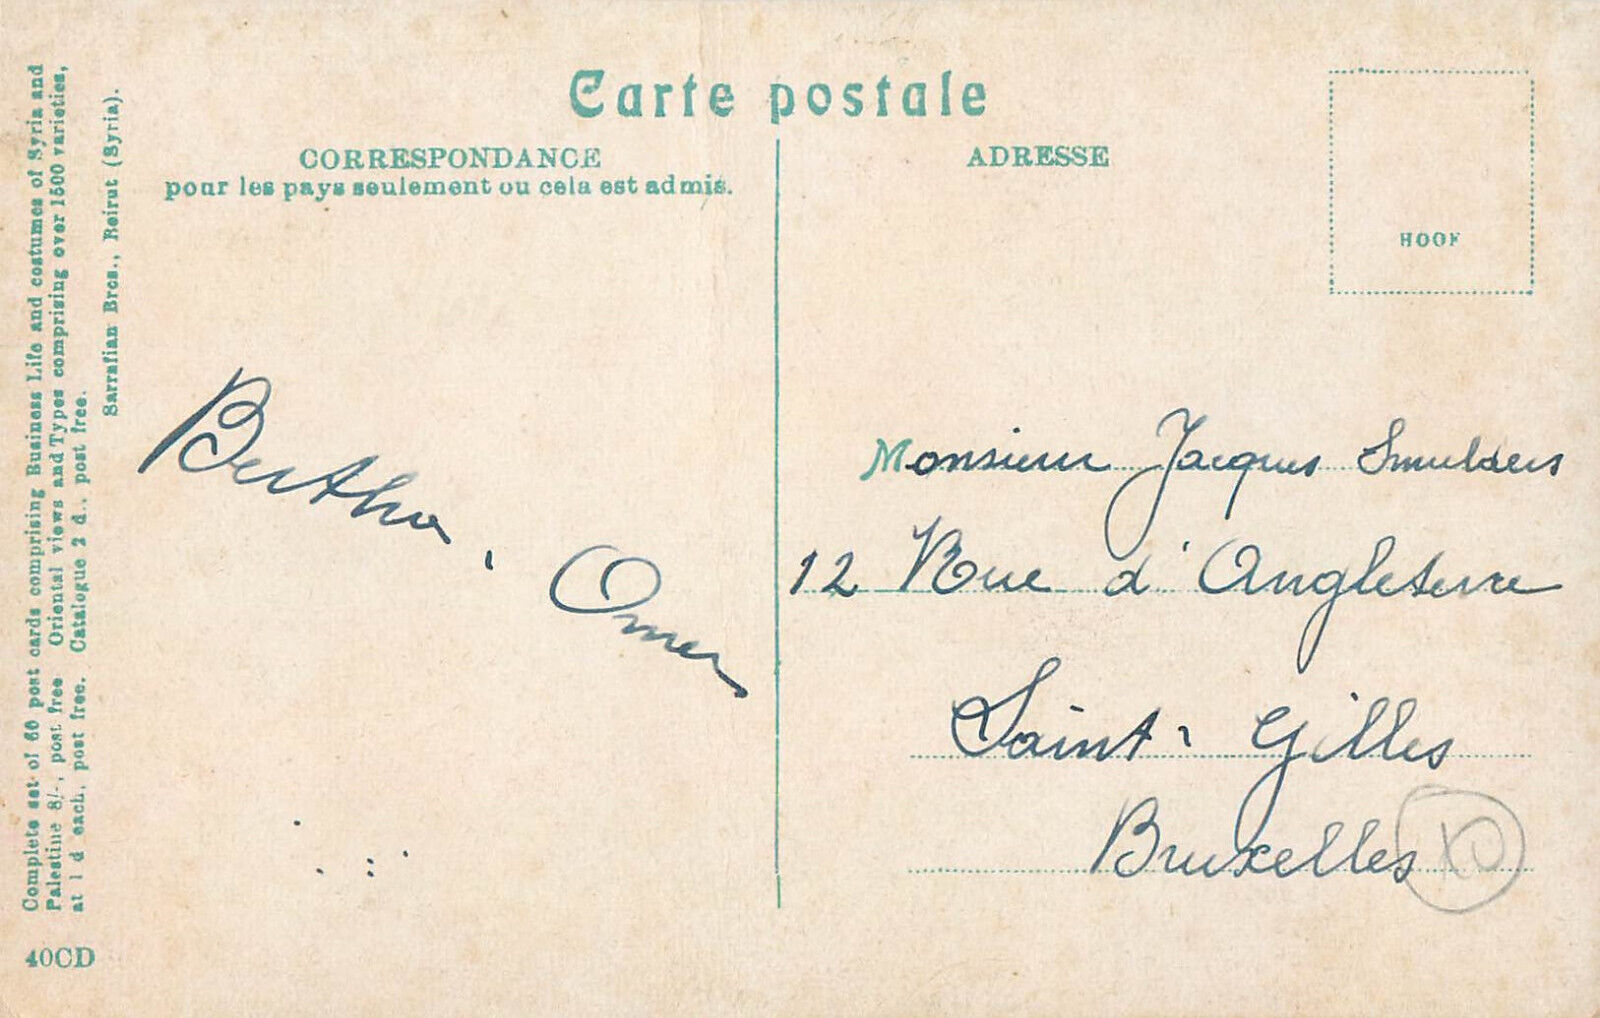 Carte postale
CORRESPONDANCE
pour les pays seulement ou cela est admis.
ADRESSE
HOOF
Complete set of 66 post cards comprising Business Life and costumes of Syria and
Palestine 8/-, post free Oriental views and Types comprising over 1500 varieties,
at 1 d each, post free. Catalogue 2 d., post free.
Sarrafian Bros., Beirut (Syria).
40CD
Bertha, Omer
Monsieur Jacques Smulders
12 Rue d'Angleterre
Saint-Gilles
Bruxelles